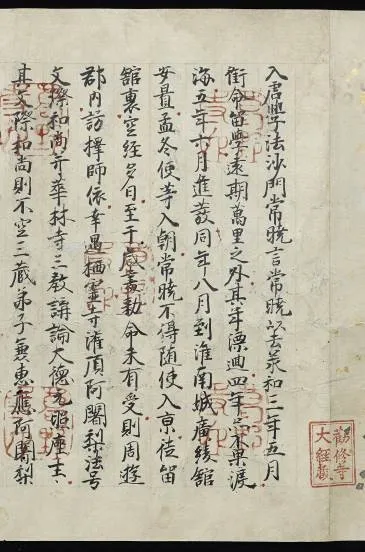 入唐學法沙門常曉言常曉以去承和三年五月
銜命留學遠期萬里之外其年漂迴四年亦不果渡
海五年六月進發同年八月到淮南城廣陵館
安置孟冬使等入朝常曉不得随使入京徒留
館裏空經多日至于歲盡勅命未有受則周遊
郡内訪擇師依幸遇栖霊寺灌頂阿闍梨法号
文際和尚并華林寺三教講論大德元照座主
其文際和尚則不空三蔵弟子無惠應阿闍梨
勸修寺
大經藏